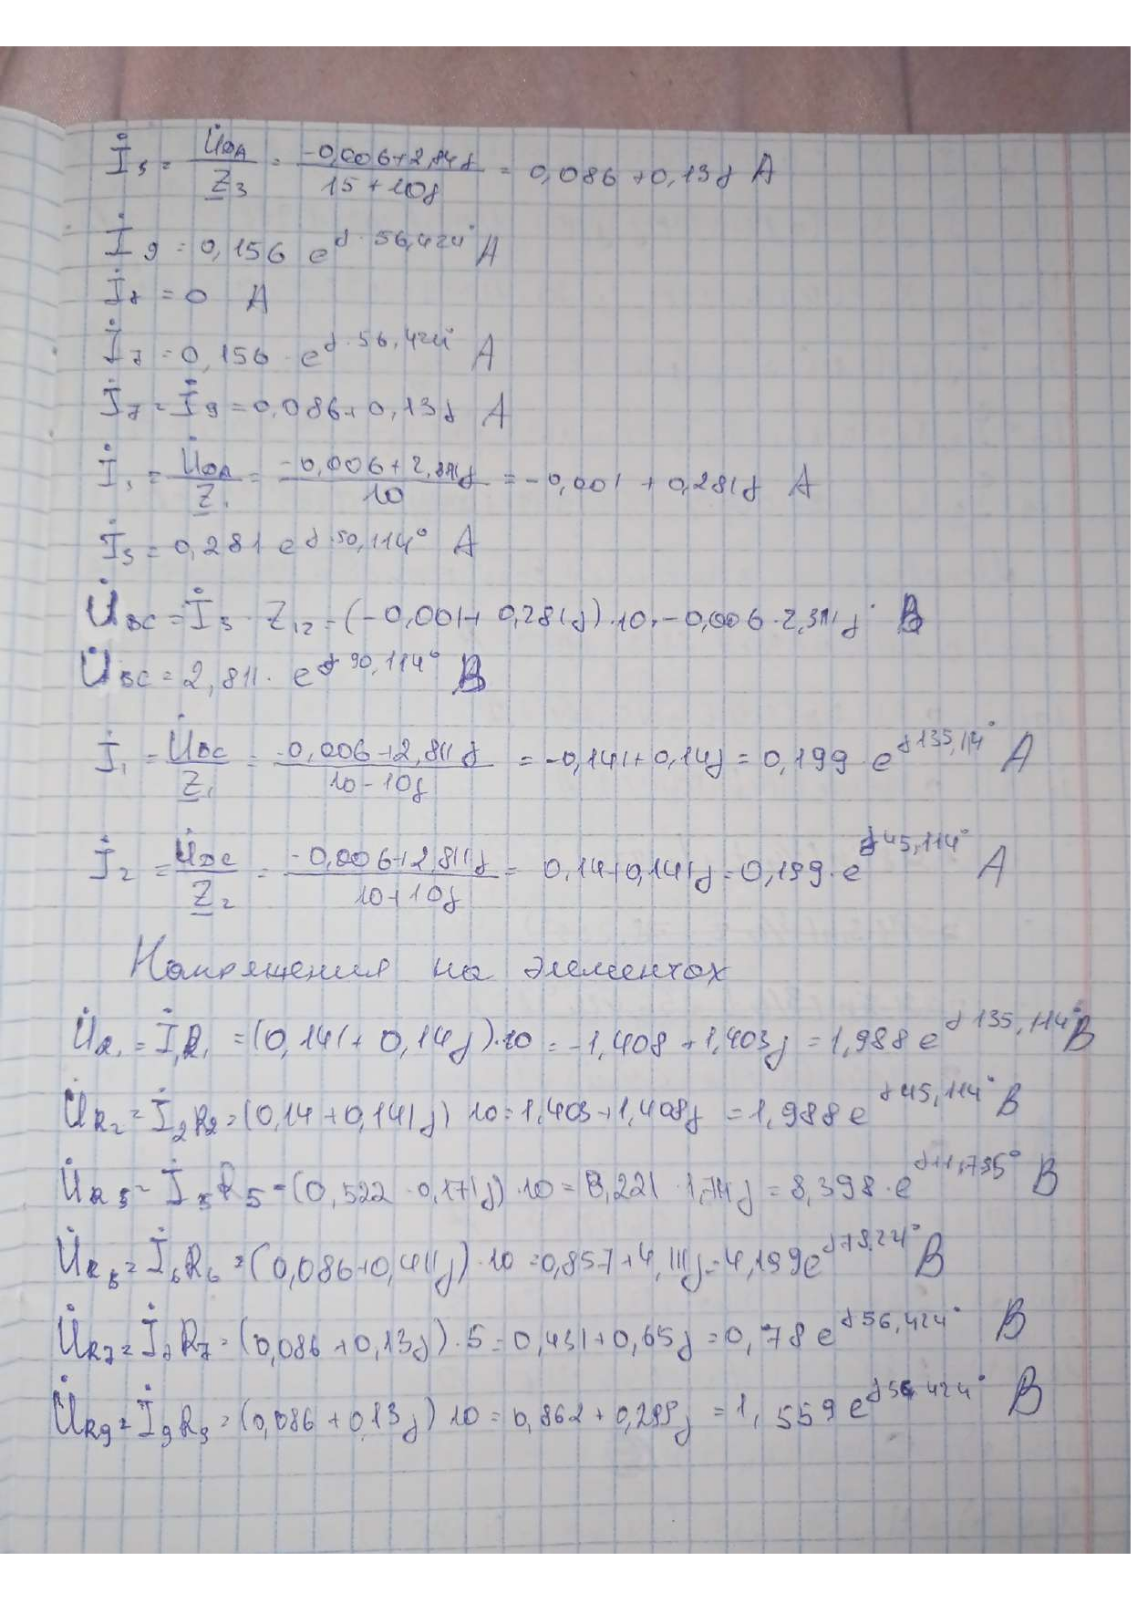 İ₅ = U̇DA / Z₃ = (-0,006+2,84j) / (15+10j) = 0,086+0,13j A
İ₉ = 0,156 e^j·56,424° A
İ₈ = 0 A
İ₇ = 0,156 · e^j·56,424° A
İ₇ = İ₉ = 0,086+0,13j A
İ₃ = U̇DA / Z₁ = (-0,006+2,811j) / 10 = -0,001 + 0,281j A
İ₃ = 0,281 e^j·90,114° A
U̇DC = İ₃ · Z₁₂ = (-0,001+0,281j)·10 = -0,006 · 2,811j B
U̇DC = 2,811 · e^j·90,114° B
İ₁ = U̇DC / Z₁ = (-0,006+2,811j) / (10-10j) = -0,141+0,14j = 0,199 · e^j135,114° A
İ₂ = U̇DC / Z₂ = (-0,006+2,811j) / (10+10j) = 0,14+0,141j = 0,199 · e^j45,114° A
Напряжения на элементах
U̇R₁ = İ₁R₁ = (0,141+0,14j)·10 = -1,408+1,403j = 1,988 e^j135,114° B
U̇R₂ = İ₂R₂ = (0,14+0,141j)·10 = 1,403+1,408j = 1,988 e^j45,114° B
U̇R₅ = İ₅R₅ = (0,522 · 0,171j)·10 = 8,221 · 1,74j = 8,398 · e^j11,735° B
U̇R₆ = İ₆R₆ = (0,086+0,411j)·10 = 0,857+4,111j = 4,199 e^j78,24° B
U̇R₇ = İ₇R₇ = (0,086+0,13j)·5 = 0,431+0,65j = 0,78 e^j56,424° B
U̇R₉ = İ₉R₉ = (0,086+0,13j)·10 = 0,862+0,299j = 1,559 e^j56,424° B